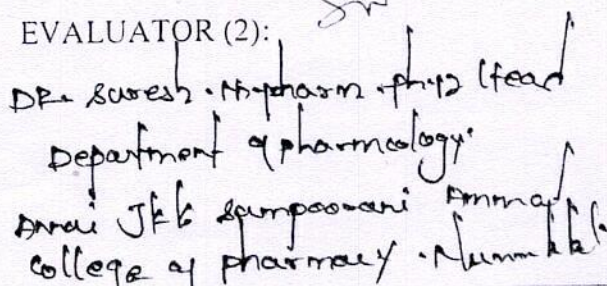 EVALUATOR (2):
DR. Suresh. M.pharm. ph.D Head
Department of pharmcology.
Annai JKK Sampoorani Ammal
College of pharmacy.